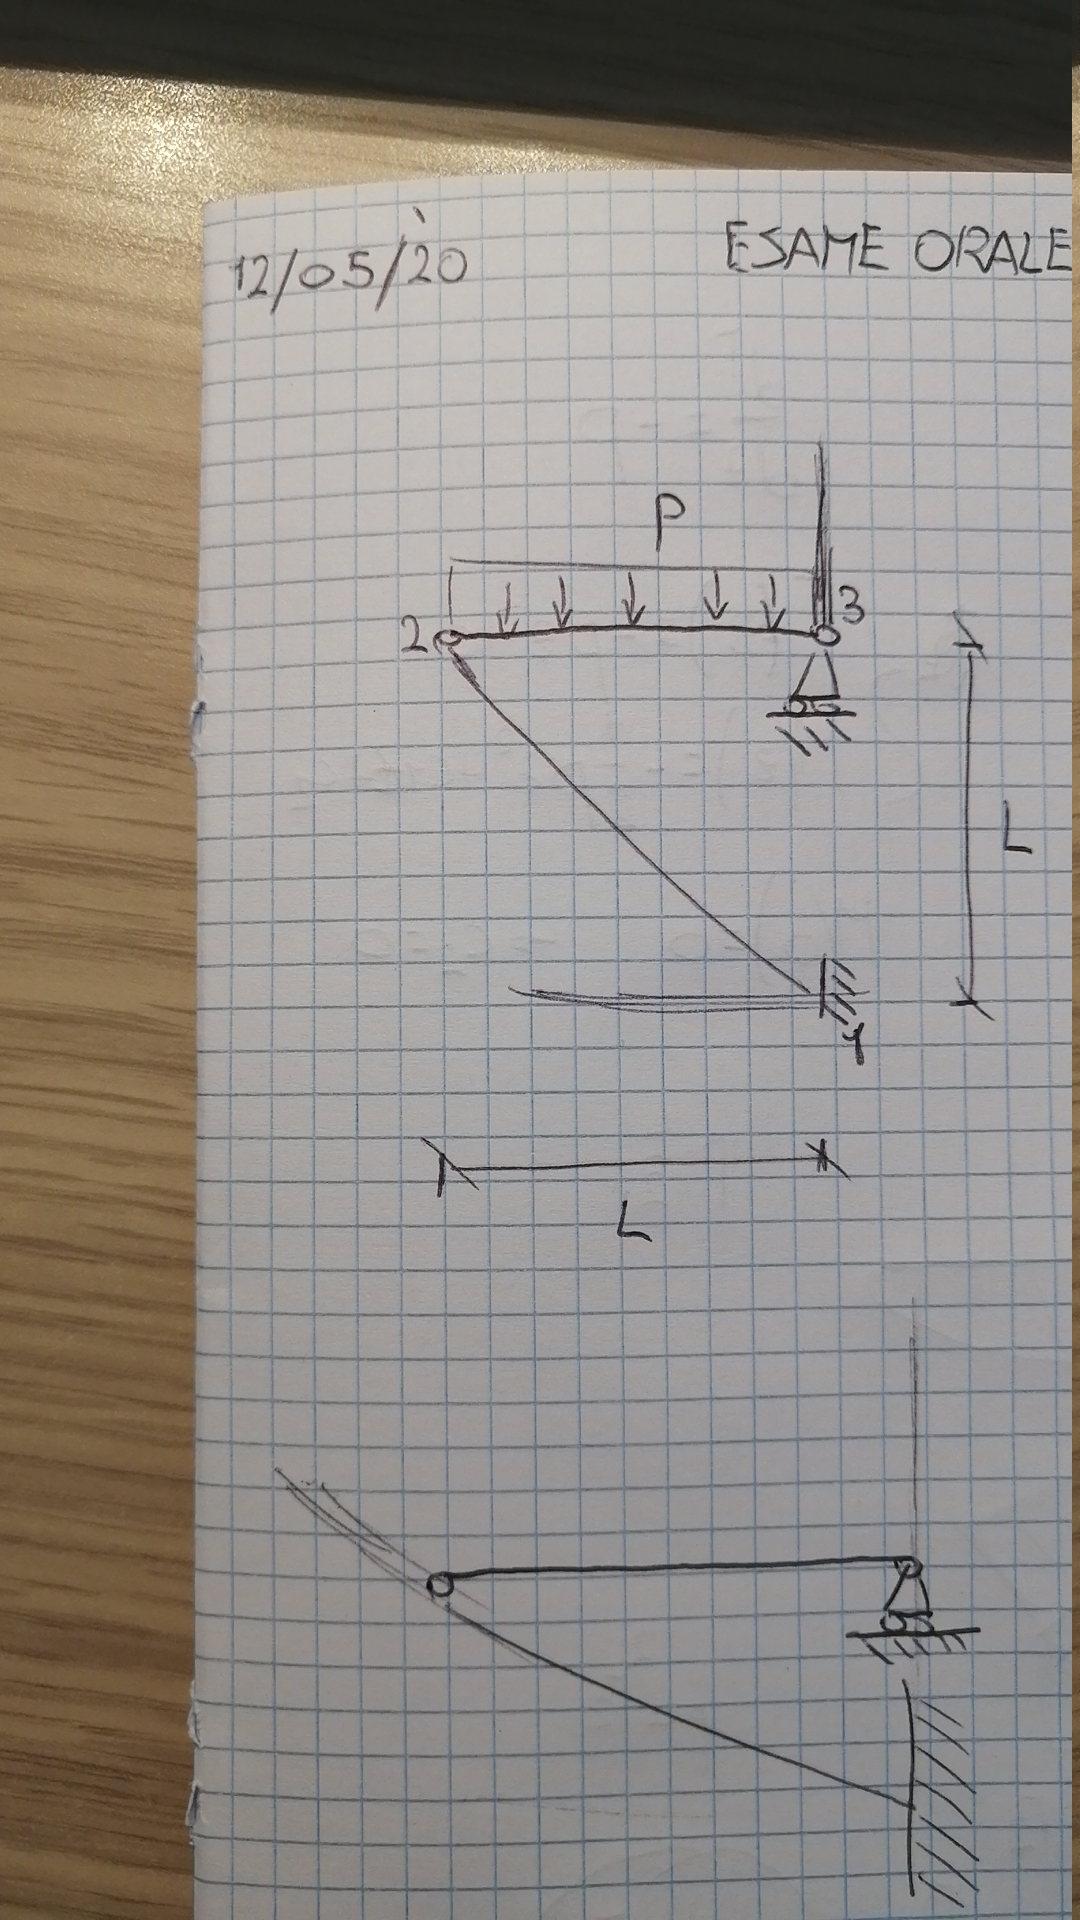 12/05/20 ESAME ORALE
P
2 3
L
1
L